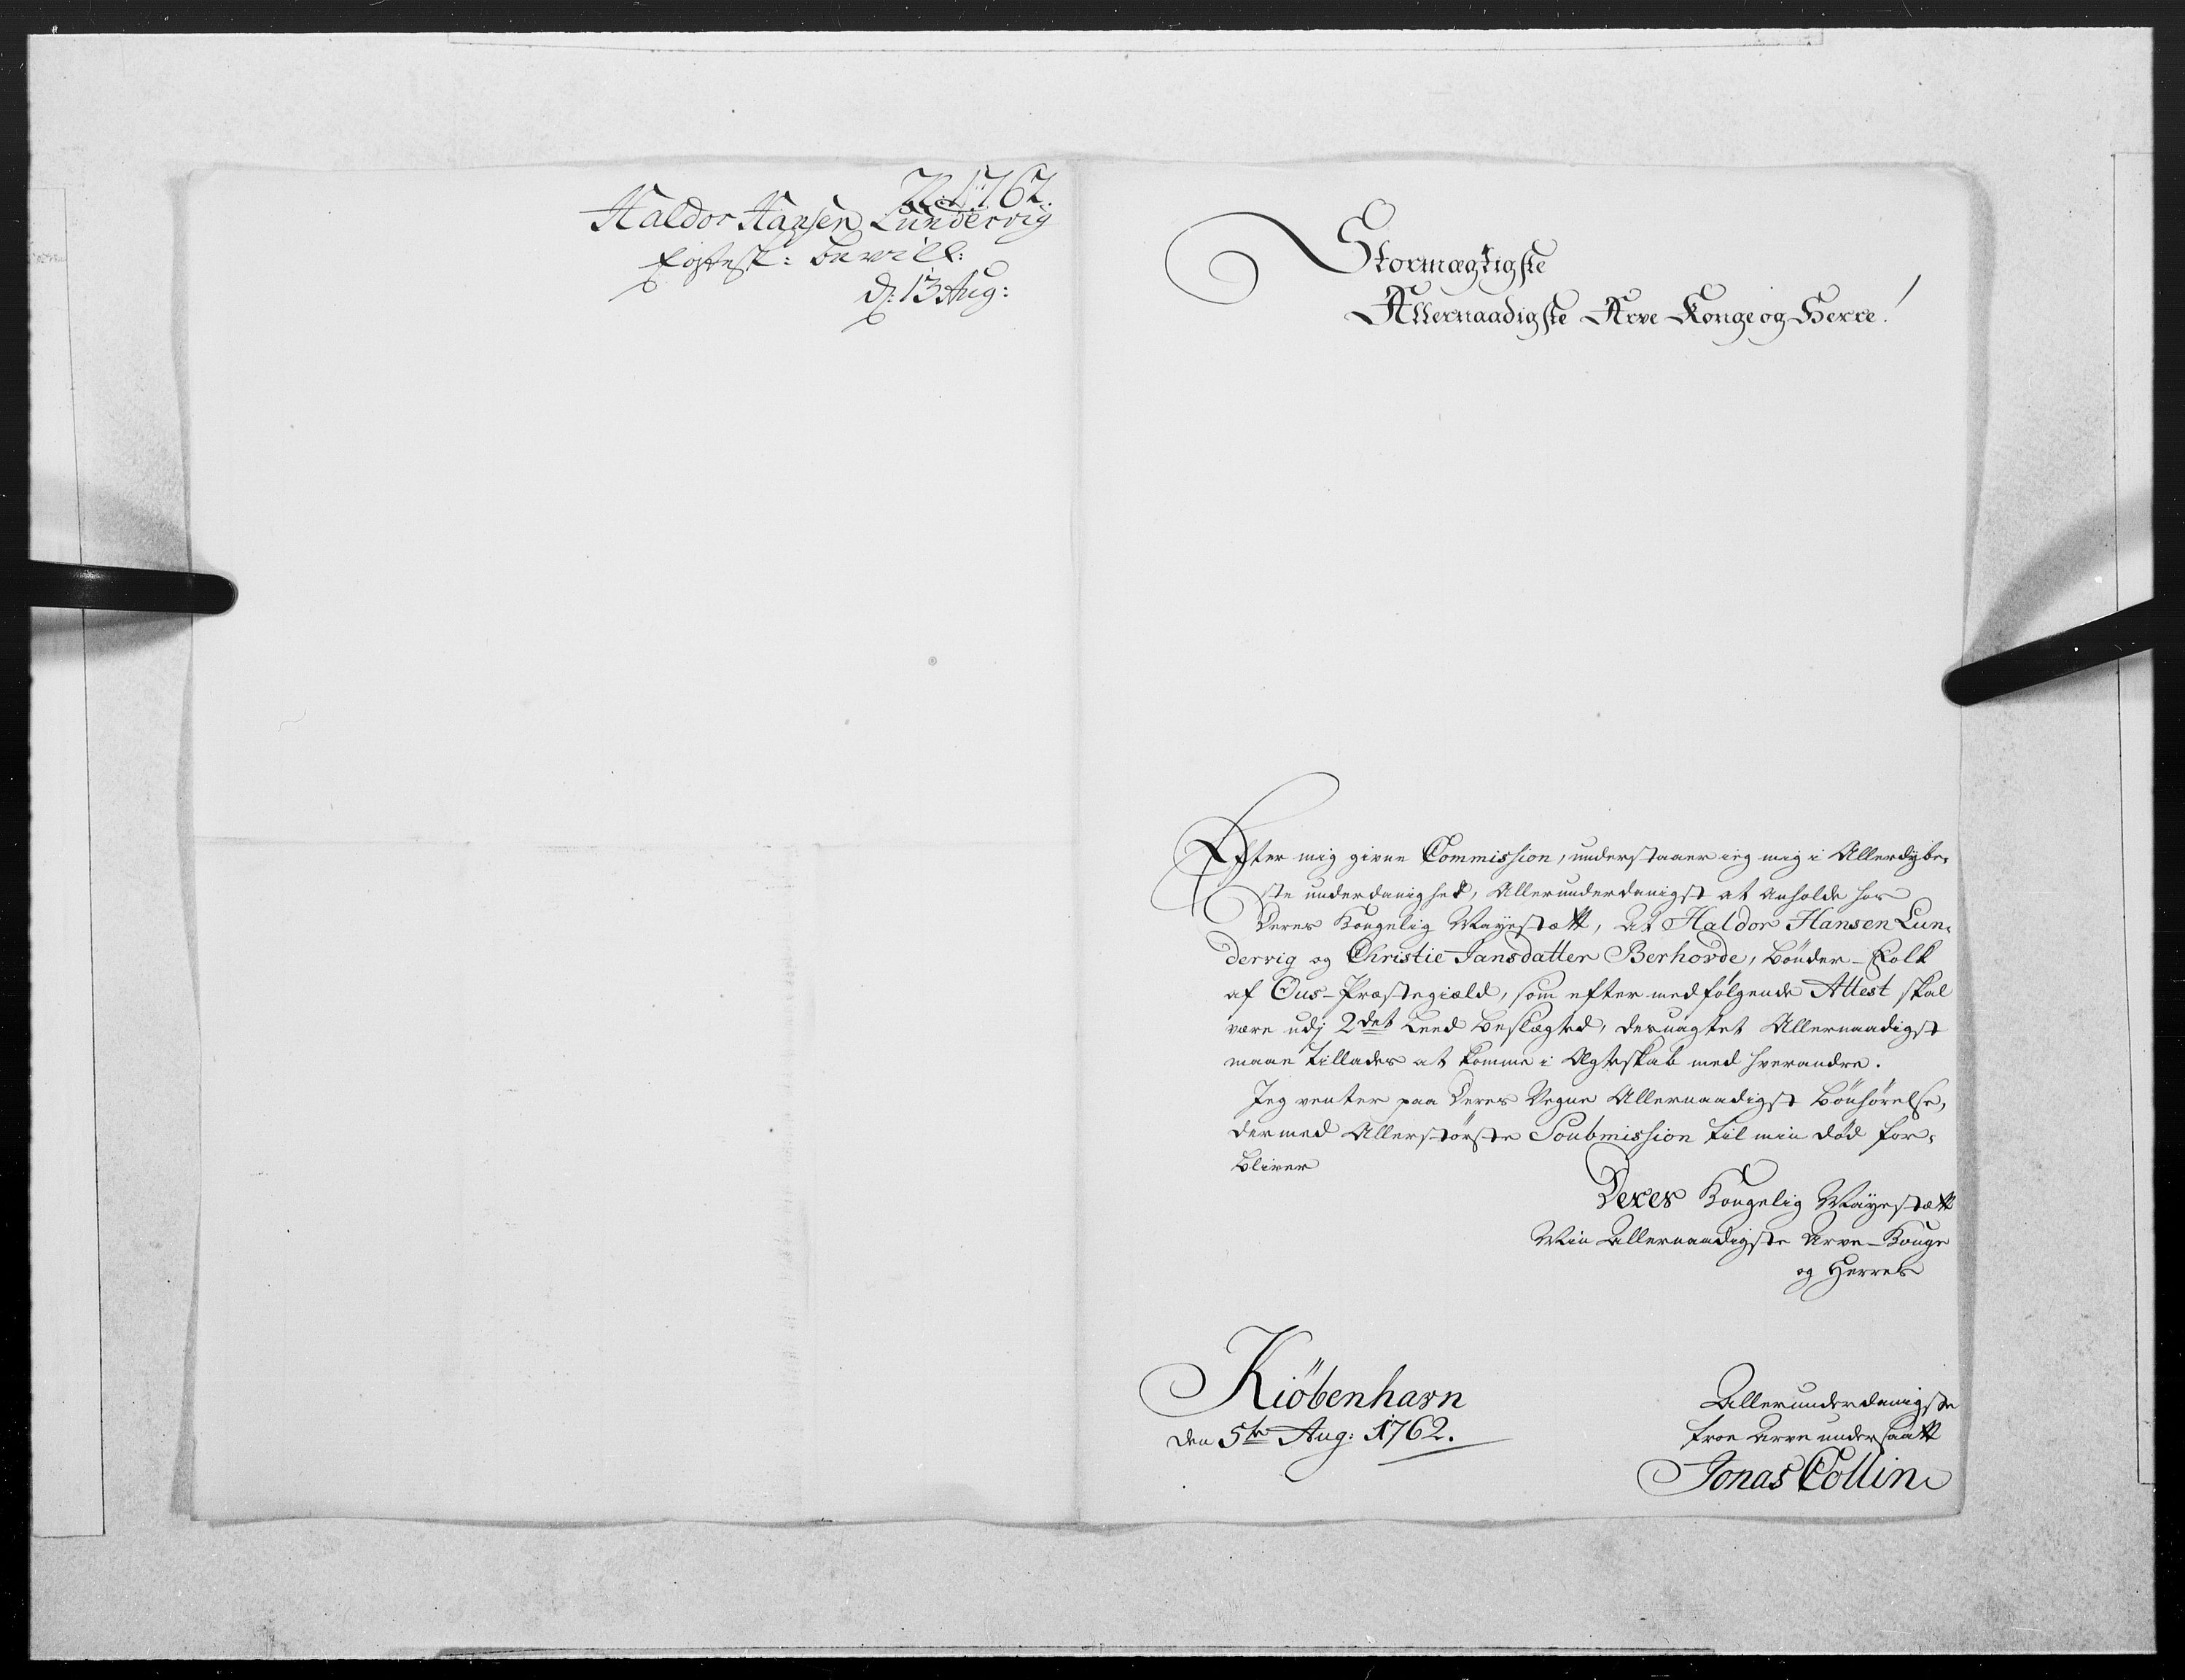 1762.
Haldor Hansen Lundervig
bevill:
d: 13 Aug:
Stormægtigste
Allernaadigste Arve Konge og Herre!
Efter mig givne Commission, understaaer ieg mig i Allerdybe-
ste underdanighed, Allerunderdanigst at anholde hos
Deres Kongelig Mayestætt, At Haldor Hansen Lun-
dervig og Christie Jansdatter Berhovde, bönder-Folk
af Ous-Præstegiæld, som efter medfølgende Attest skal
være udj 2det Leed beslægted, desuagtet Allernaadigst
maae tillades at komme i Ægteskab med hverandre.
Jeg venter paa Deres Vegne Allernaadigst bönhørelse,
der med Allerstörste Soubmission til min död for-
bliver
Deres Kongelig Mayestætt
Min Allernaadigste Arve-Konge
og Herres
Kiöbenhavn
den 5te Aug: 1762.
Allerunderdanigste
troe Arve undersaatt
Jonas Collin